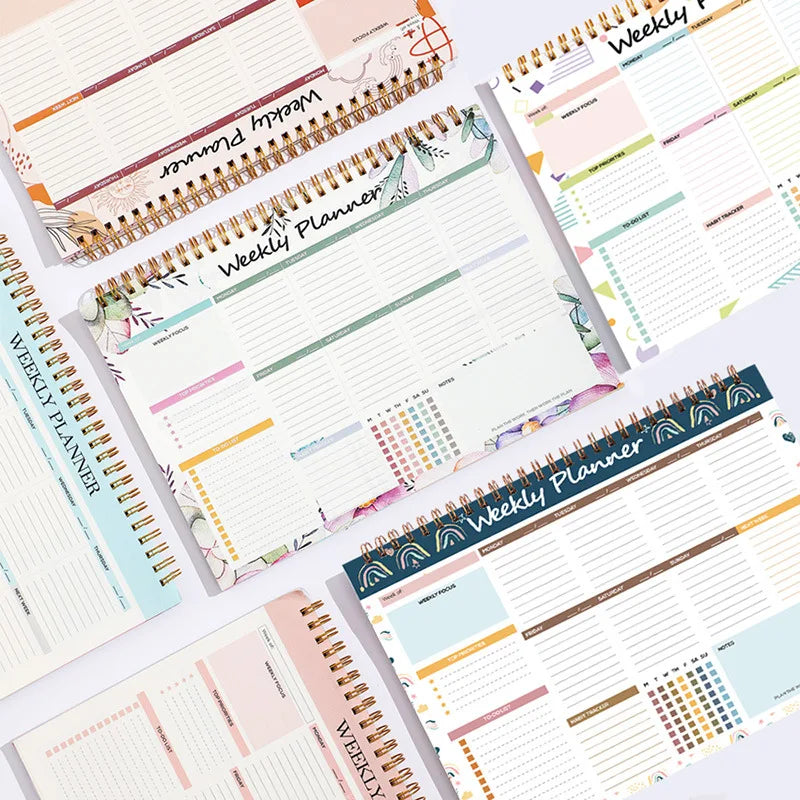 WEEKLY FOCUS
SATURDAY
SUNDAY
MONDAY
TUESDAY
NEXT WEEK
WEDNESDAY
THURSDAY
Weekly Planner
Weekly Planner
MONDAY
TUESDAY
Week of:
WEEKLY FOCUS
FRIDAY
SATURDAY
TOP PRIORITIES
TO-DO LIST
HABIT TRACKER
M T W
Weekly Planner
MONDAY
TUESDAY
WEDNESDAY
THURSDAY
WEEKLY FOCUS
FRIDAY
SATURDAY
SUNDAY
TOP PRIORITIES
TO DO LIST
M T W TH F SA SU
NOTES
PLAN THE WORK, THEN WORK THE PLAN
WEEKLY PLANNER
TUESDAY
WEDNESDAY
THURSDAY
NEXT WEEK
Weekly Planner
MONDAY
TUESDAY
WEDNESDAY
THURSDAY
Week of:
WEEKLY FOCUS
FRIDAY
SATURDAY
SUNDAY
NEXT WEEK
TOP PRIORITIES
TO-DO LIST
HABIT TRACKER
M T W TH F SA SU
NOTES
PLAN THE W
WEEKLY
Week of:
WEEKLY FOCUS
TOP PRIORITIES
TO-DO LIST
MONDAY
FRIDAY